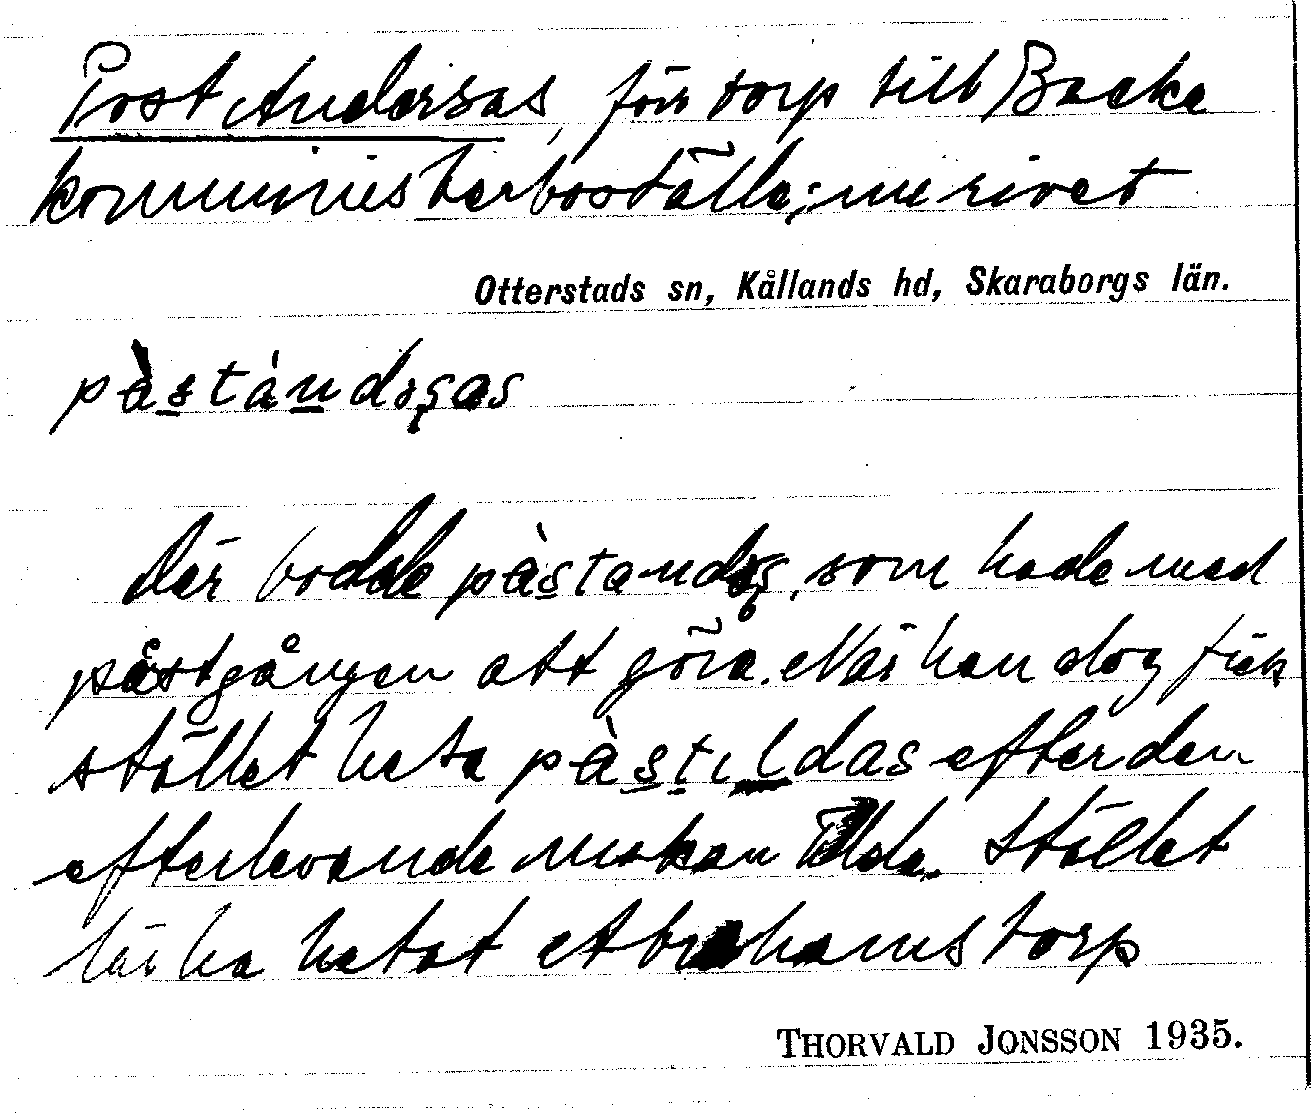 Post Andersas, förr torp till Backa
komministerboställe; nu rivet
Otterstads sn, Kållands hd, Skaraborgs län.
pàstándəşas
Där bodde pàstandəş, som hade med
påstgången att göra. När han dog fick
stället heta pàstıldas efter den
efterlevande makan Tilda. Stället
lär ha hetat Abrahamstorp
THORVALD JONSSON 1935.